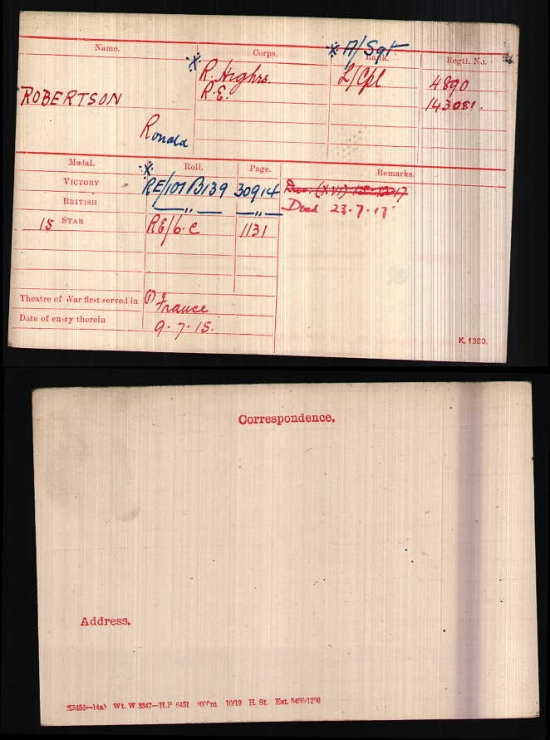 Name. Corps. Rank. Regtl. No.
* A/Sgt
* R. Highrs. L/Cpl 4890
ROBERTSON R.E. 143081.
Ronald
Medal. Roll. Page. Remarks.
VICTORY * RE/101 B139 30914
BRITISH —„— —„—
Died 23.7.17
15 STAR RE/6.C 1131
Theatre of War first served in (1) France
Date of entry therein 9.7.15.
K. 1380.
Correspondence.
Address.
Wt. W 3347—H.P 6451 10/19 H. St.